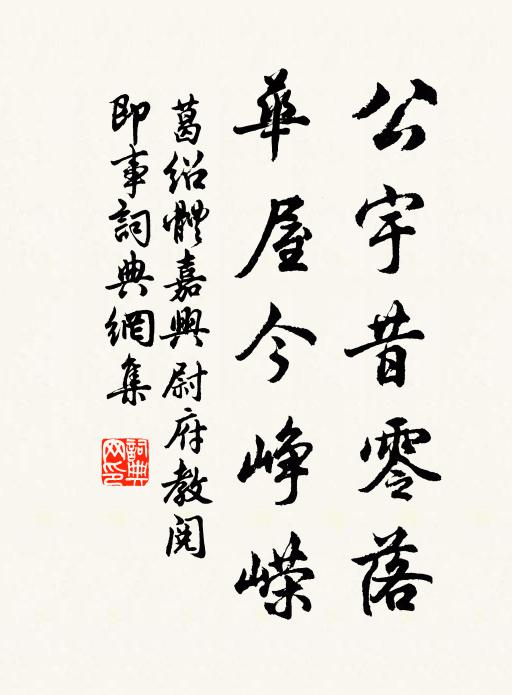 公宇昔零落
華屋今崢嶸
葛紹體嘉興尉府教閱
即事詞典網集
詞典網印